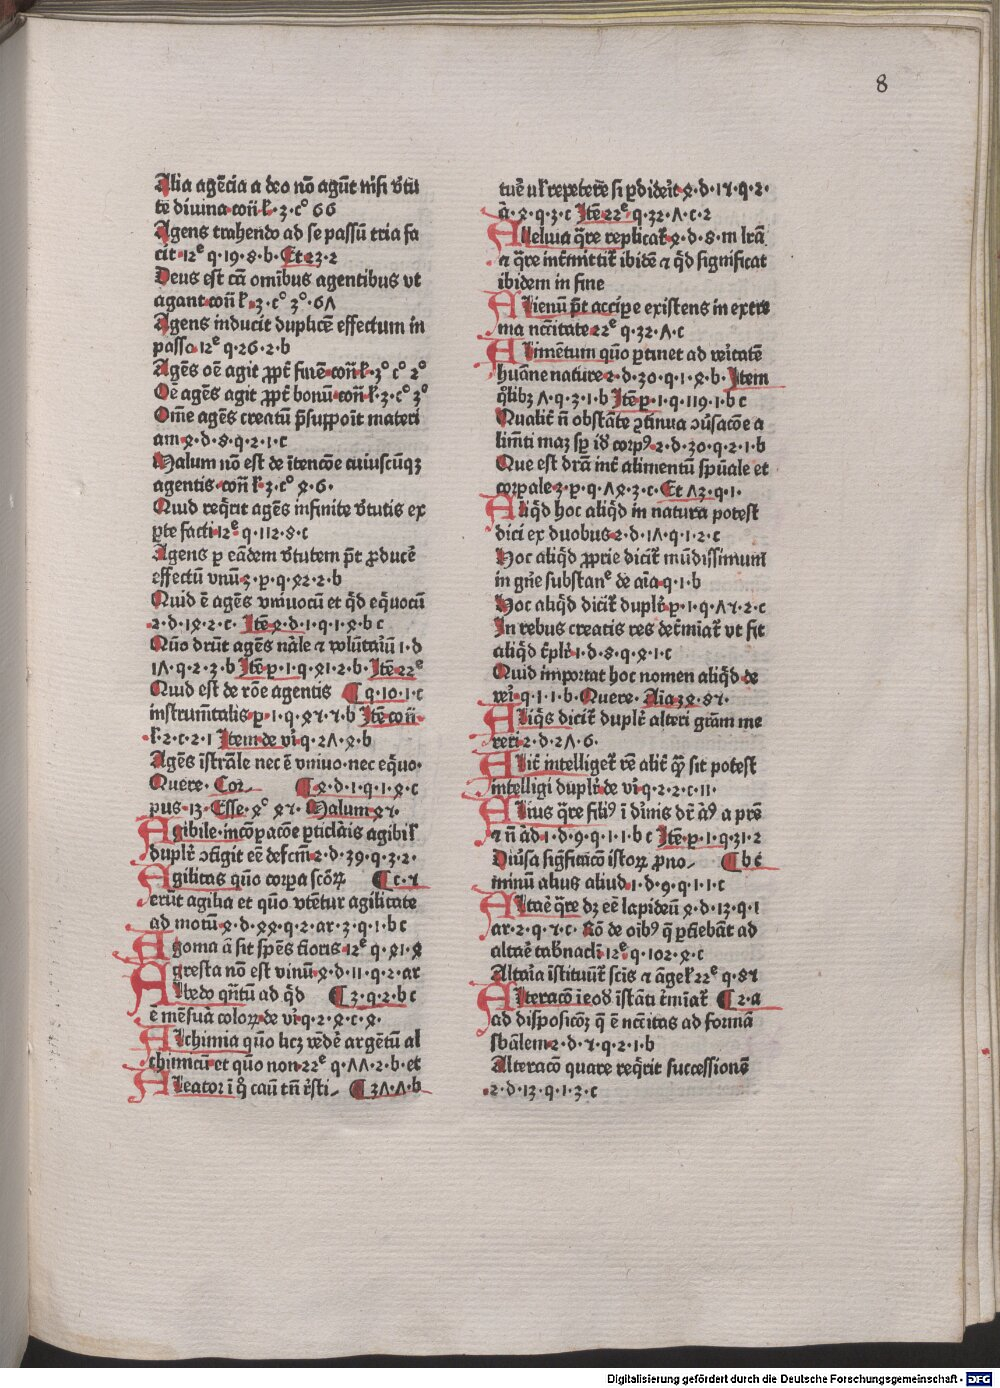 8
Alia agēcia a deo nō agūt nisi v̄tu
te diuina con̄ l̄·3·c° 66
Agens trahendo ad se passū tria fa
cit·12ᵉ q·19·8·b·Et 23·2
Deus est cā omībus agentibus vt
agant·con̄ l̄·3·c° 3°·6Λ
Agens inducit duplicē effectum in
passo·12ᵉ q·26·2·b
Agēs oē agit ꝓpt̄ finē·con̄·l̄·3° c° 2°
Oē agēs agit ꝓpt̄ bonū·con̄·l̄·3·c° 3°
Om̄e agēs creatū p̄suppoīt materi
am·ꝝ·d·8·q·2·1·c
Malum nō est de ītencōe cuiuscūqꝫ
agentis·con̄ l̄·3·c° ꝝ·6·
Quid reqͥrit agēs infinite v̄tutis ex
ꝑte facti·12ᵉ q·112·8·c
Agens ꝑ eādem v̄tutem p̄t ꝓducē
effectū vnū·3·p·q·ꝝ2·2·b
Quid ē agēs vniuocū et qͥd eqͥuocū
2·d·1ꝝ·2·c· Itē ꝝ·d·1·q·1·ꝝ·b c
Qūo drūt agēs nāle ⁊ volūtaīū 1·d
1Λ·q·2·3·b Itē p·1·q·ꝝ1·2·b· Itē 22ᵉ
Quid est de rōe agentis ¶ q·10·1·c
instrum̄talis·p·1·q·ꝝ7·7·b Itē con̄·
l̄·2·c·2·1 Item de vi·q·2Λ·ꝝ·b
Agēs īstrāle nec ē vniuo·nec eqͥuo·
Quere· Cor ¶ ꝝ·d·1·q·1·ꝝ·c
pus·13·Esse·ꝝ° ꝝ7·Malum ꝝ7·
Agibile·incōꝑacōe ꝑticlāis agibil̄
duplr̄ ↄtīgit eē defcm̄·2·d·39·q·3·2·
Agilitas qūo corꝑa scōꝝ ¶ c·7
erūt agilia et qūo vtētur agilitate
ad motū·ꝝ·d·ꝝꝝ·q·2·ar·3·q·1·b c
Agoma ā sit sp̄es tioris·12ᵉ q·ꝝ1·ꝝ
Agresta nō est vinū·ꝝ·d·11·q·2·ar
Albedo qn̄tū ad qͥd ¶ 3·q·2·b c
ē mēsuā coloꝝ·de vi·q·2·ꝝ·c·ꝝ·
Alchimia qūo licꝫ vēdē argētū al
chimicū et qūo non·22ᵉ q·ΛΛ·2·b·et
Aleator ī qͦ cau tn̄ r̄sti ¶ 3Λ·Λ·b
tuē ul̄ repetere si ꝑdideīt·ꝝ·d·17·q·2·
ā·ꝝ·q·3·c Itē 22ᵉ·q·32·Λ·c·2
Alleluia qr̄e replicat̄ ꝝ·d·8·m lrā
⁊ qr̄e int̄mittit̄ ibidē ⁊ qͥd significat
ibidem in fine
Alienū p̄t accipe existens in extre
ma nccitate·22ᵉ q·32·Λ·c
Alimētum qūo ꝑtinet ad v̄itatē
huāne nature·2·d·30·q·1·ꝝ·b· Item
qͦlibꝫ Λ·q·3·1·b Itē p·1·q·119·1·b c
Qualit̄ n̄ obstāte ꝯtinua ↄūsacōe a
lim̄ti maꝫ sꝑ id̄ corpꝰ·2·d·30·q·2·1·b
Que est dr̄a int̄ alimentū spūale et
corpale·3·p·q·Λꝝ·3·c·Et Λ3·q·1·
Aliqͥd hoc aliqͥd in natura potest
dici ex duobus·2·d·1Λ·q·1·2·c
Hoc aliqͥd ꝓprie dicit̄ īdiuiissimum
in gn̄e substanᵉ de aīa·q·1·b
Hoc aliqͥd dicit̄ duplr̄·p·1·q·Λ7·2·c
In rebus creatis res det̄miat̄ vt sit
aliqͥd t̄plr̄·1·d·8·q·ꝝ·1·c
Quid importat hoc nomen aliqͥd de
vei·q·1·1·b·Quere·Alia 3ꝝ·87·
Aliqͥs dicit̄ duplr̄ alteri grām me
reri·2·d·2Λ·6·
Alit̄ intelliget̄ rē alit̄ q̄ sit potest
intelligi duplr̄·de vi·q·2·2·c·11·
Alius qr̄e filiꝰ ī dīnis dr̄ ad̄ a pr̄e
⁊ n̄ ad̄·1·d·9·q·1·1·b c Itē·p·1·q·31·2
Diūsa signficacō istoꝝ ꝓno ¶ b c
minū alius aliud·1·d·9·q·1·1·c
Altaē qr̄e dꝫ eē lapideū ꝝ·d·13·q·1
ar·2·q·7·c·Rō de oibꝰ q̄ ꝑtiebāt ad
altaē tabnacli·12ᵉ q·102·ꝝ·c
Altaīa īstituūt̄ scis ⁊ āgel̄·22ᵉ q·87
Alteracō ī eod̄ īstāti t̄miat̄ ¶ 2·a
ad disposicōꝫ q̄ ē nccitas ad formā
sbālem·2·d·7·q·2·1·b
Alteracō quare reqͥrit successionē
2·d·13·q·1·3·c
Digitalisierung gefördert durch die Deutsche Forschungsgemeinschaft - DFG